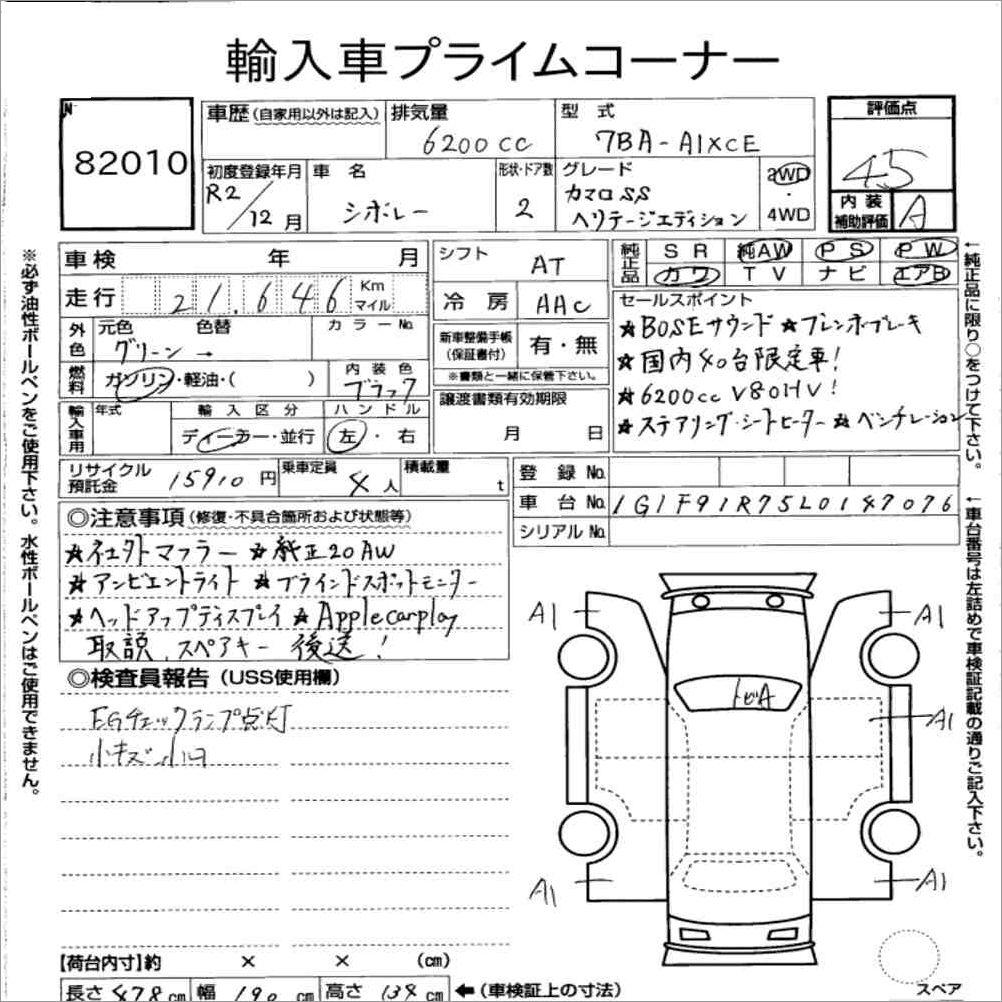 輸入車プライムコーナー
№
82010
車歴(自家用以外は記入)
排気量
6200cc
型式
7BA-A1XCE
評価点
4.5
初度登録年月
R2/12月
車名
シボレー
形状・ドア数
2
グレード
カマロSS
ヘリテージエディション
2WD
・
4WD
内装
補助評価
A
車検 年 月
走行 21.646 Km マイル
外色
元色 色替
グリーン →
カラーNo.
燃料
ガソリン・軽油・( )
内装色
ブラック
輸入車用
年式
輸入区分
ディーラー・並行
ハンドル
左・右
シフト AT
冷房 AAC
新車整備手帳
(保証書付)
有・無
※書類と一緒に保管下さい。
譲渡書類有効期限
月 日
純正品
SR 純AW PS PW
カワ TV ナビ エアB
セールスポイント
★BOSEサウンド ★ブレンボブレーキ
★国内40台限定車!
★6200cc V8OHV!
★ステアリング・シートヒーター ★ベンチレーション
リサイクル
預託金
15910円
乗車定員
4人
積載量
t
登録No.
車台No. 1G1F91R75L0147076
シリアルNo.
◎注意事項(修復・不具合箇所および状態等)
★社外マフラー ★純正20AW
★アンビエントライト ★ブラインドスポットモニター
★ヘッドアップディスプレイ ★Applecarplay
取説、スペアキー 後送!
◎検査員報告(USS使用欄)
EGチェックランプ点灯
小キズ小凹
A1
A1
トビA
A1
A1
A1
スペア
【荷台内寸】約 × × (cm)
長さ 478cm 幅 190cm 高さ 134cm ←(車検証上の寸法)
※必ず油性ボールペンをご使用下さい。水性ボールペンはご使用できません。
↑純正品に限り○をつけて下さい。
↑車台番号は左詰めで車検証記載の通りご記入下さい。